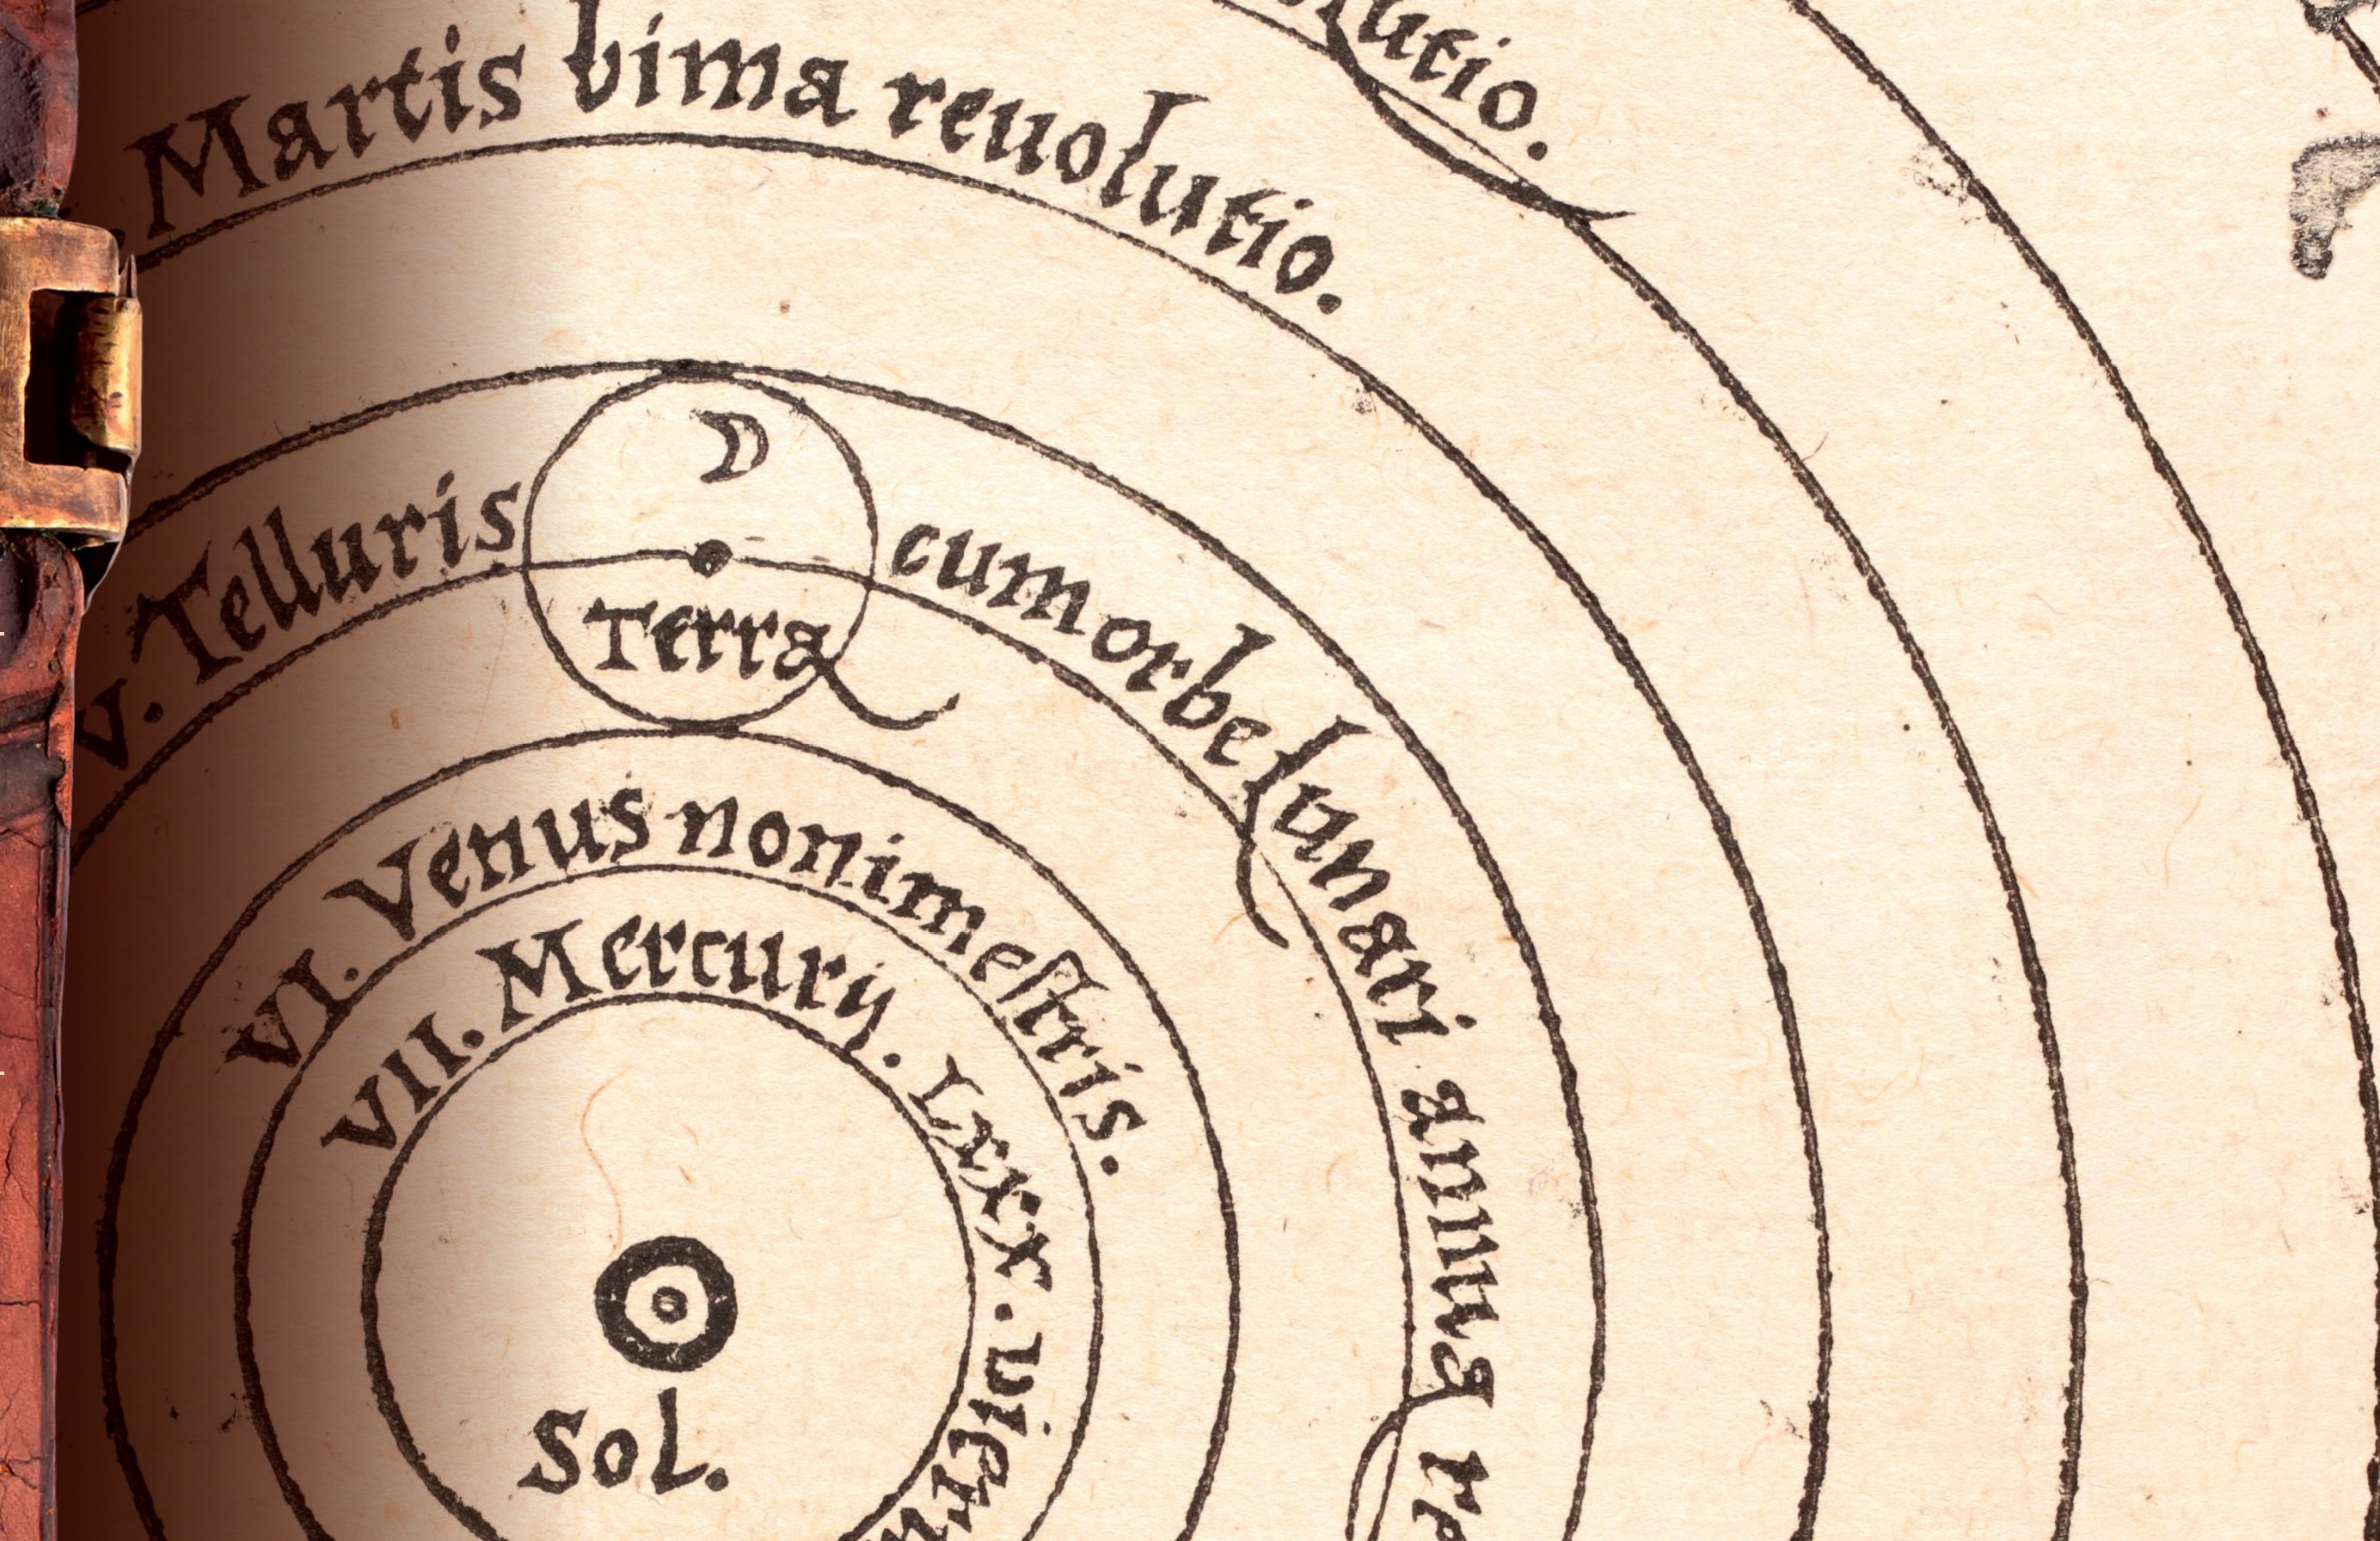 Martis bima reuolutio.
D
V. Telluris cum orbe lunari annua re
Terra
VI. Venus nonimeſtris.
VII. Mercurij. Lxxx. dierum
Sol.